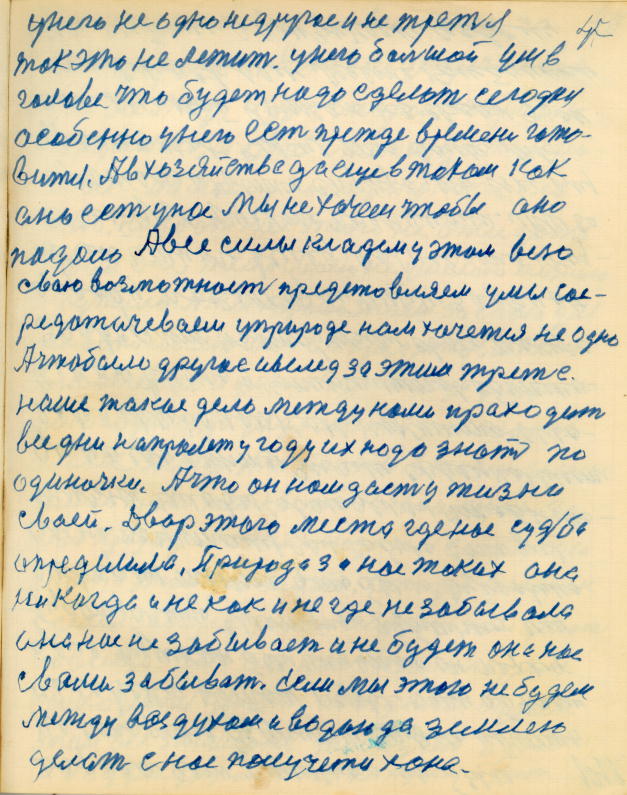 45
унего не одно не другое и не третея
так это не летит. унего большой ум в
голове что будет надо сделат сегодня
особенно унего ест прежде времени гото-
вится. А в хозяйстве да еще в таком как
оно ест у нас мы не хочем чтобы оно
падоло А все силы кладем у этом всю
сваю возможност предстовляем умы сос-
редатачеваем у природе нам хочется не одно
А чтобыло другое и вслед за этим трете.
наше такое дело между нами праходит
все дни напролёт у году их надо знать по
одиночки. А что он нам даст у жизни
своей. Двор этого места где нас судьба
определила. Природа за нас таких она
никогда и не как и не где не забывала
она нас не забывает и не будет она нас
с вами забыват. если мы этого не будем
между воздухом и водою да землею
делат с нас получется хана.